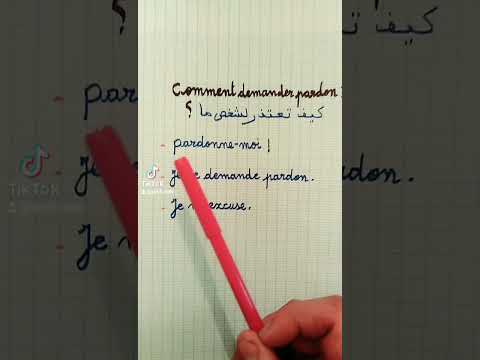 Comment demander pardon ?
كيف تعتذر لشخص ما ؟
- pardonne-moi !
- Je demande pardon.
- Je excuse.
TikTok